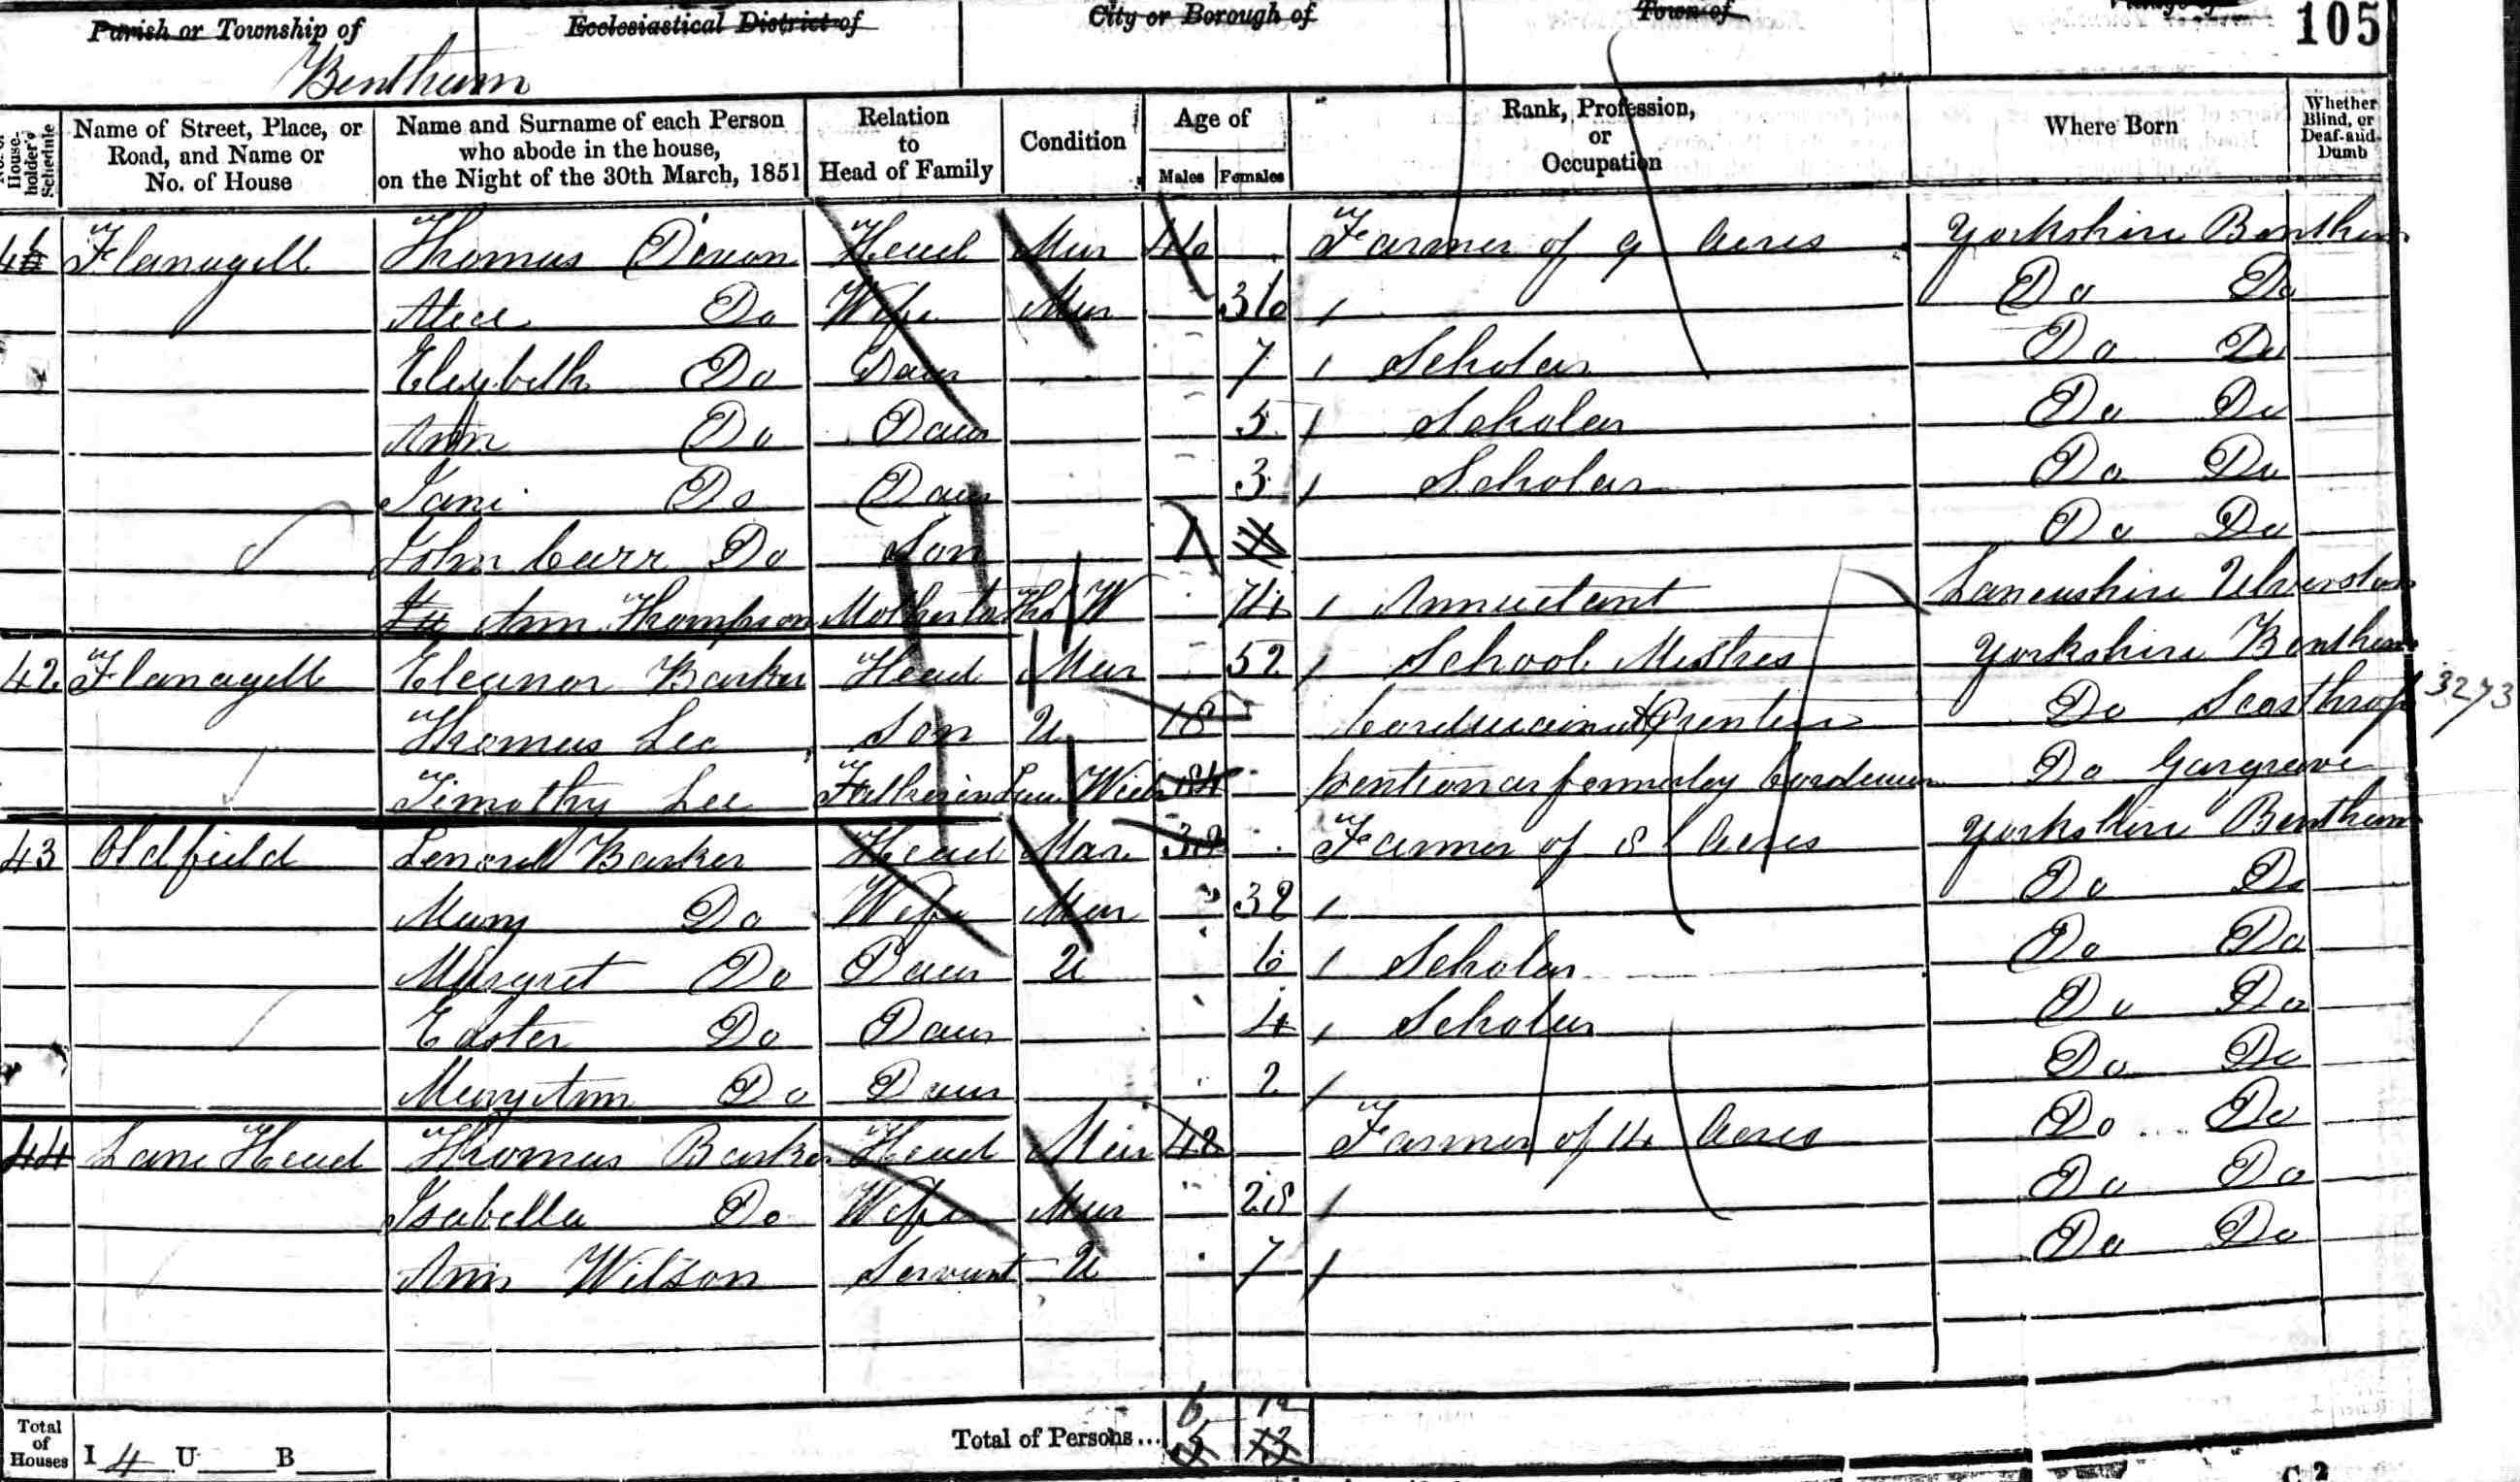 Parish or Township of Ecclesiastical District of City or Borough of Town of 105
Bentham
No. of House-holder's Schedule
Name of Street, Place, or Road, and Name or No. of House
Name and Surname of each Person who abode in the house, on the Night of the 30th March, 1851
Relation to Head of Family
Condition
Age of
Males Females
Rank, Profession, or Occupation
Where Born
Whether Blind, or Deaf-and-Dumb
Flanagill Thomas Dixon Head Mar 46 Farmer of 9 Acres Yorkshire Bentham
Alice Do Wife Mar 36 Do Do
Elizebeth Do Daur 7 Scholar Do Do
Ann Do Daur 5 Scholar Do Do
Jane Do Daur 3 Scholar Do Do
John Carr Do Son 1 Do Do
Ann Thompson Mother to Tho W 74 Annuetant Lancashire Ulverston
42 Flanagill Eleanor Barker Head Mar 52 School Mistres Yorkshire Bentham
Thomas Lee Son U 18 Do Scosthrop 3273
Timothy Lee Father in Law Wid 84 pentionar formerley Cordwiner Do Gargrave
43 Oldfield Lenord Barker Head Mar 32 Farmer of 8 Acres Yorkshire Bentham
Mary Do Wife Mar 32 Do Do
Margret Do Daur U 6 Scholar Do Do
Easter Do Daur 4 Scholar Do Do
Mary Ann Do Daur 2 Do Do
44 Lane Head Thomas Barker Head Mar 42 Farmer of 14 Acres Do Do
Isabella Do Wife Mar 28 Do Do
Ann Wilson Servant U 7 Do Do
Total of Houses I 4 U B Total of Persons... 6 12
5 13
C 2